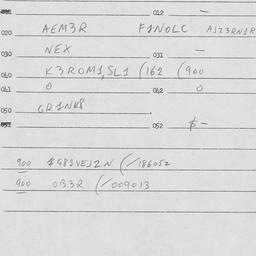 012 —
020 AEM3R F1NOLC AJZ3RN1R
030 NEX 031 —
060 K3ROM1,SL1 (162 (900
061 0 062 0
050 GR1NK8 .
052 $-
900 1G81VEJ2N (/186052
900 OB3R (/009013